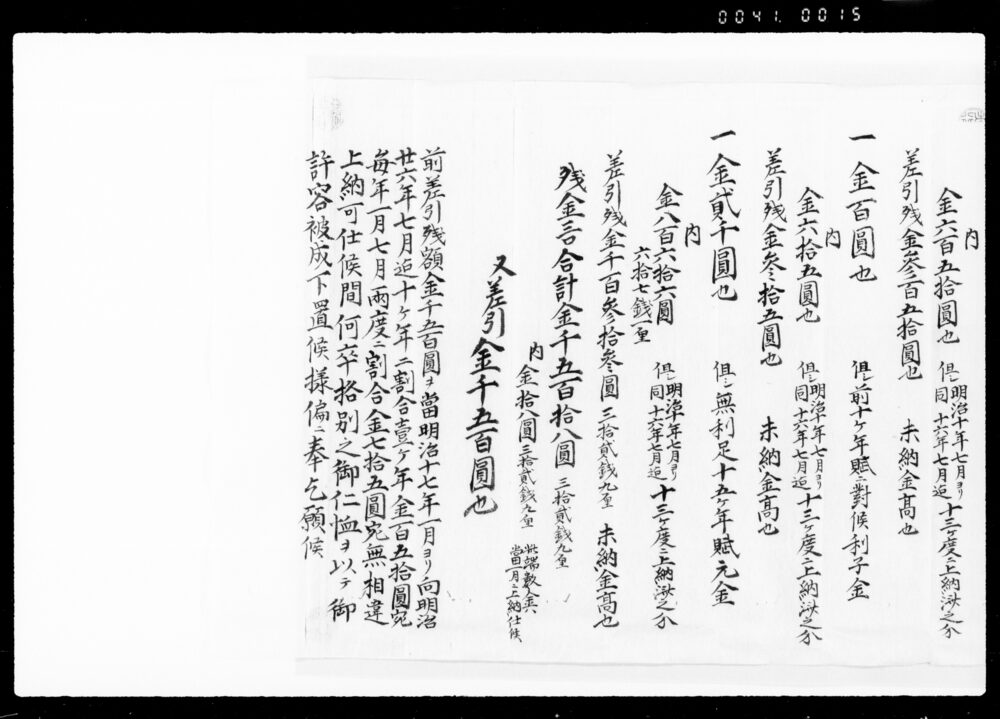 0041. 0015
内
金六百五拾圓也 但シ明治十年七月ヨリ同十六年七月迠十三ケ度ニ上納済之分
差引残金参百五拾圓也 未納金高也
一金百圓也 但シ前十ケ年賦ニ對候利子金
内
金六拾五圓也 但シ明治十年七月ヨリ同十六年七月迠十三ケ度ニ上納済之分
差引残金参拾五圓也 未納金高也
一金貳千圓也 但シ無利足十五ケ年賦元金
内
金八百六拾六圓六拾七銭 但シ明治十年七月ヨリ同十六年七月迠十三ケ度ニ上納済之分
差引残金千百参拾参圓三拾貳銭九 未納金高也
残金三口合計金千五百拾八圓三拾貳銭九
内金拾八圓三拾貳銭九 此端数金ハ當一月ニ上納仕候
又差引金千五百圓也
前差引残額金千五百圓ヲ當明治十七年一月ヨリ向明治
廿六年七月迠十ケ年ニ割合壹ケ年金百五拾圓宛
毎年一月七月兩度ニ割合金七拾五圓宛無相違
上納可仕候間何卒格別之御仁恤ヲ以テ御
許容被成下置候様偏ニ奉乞願候